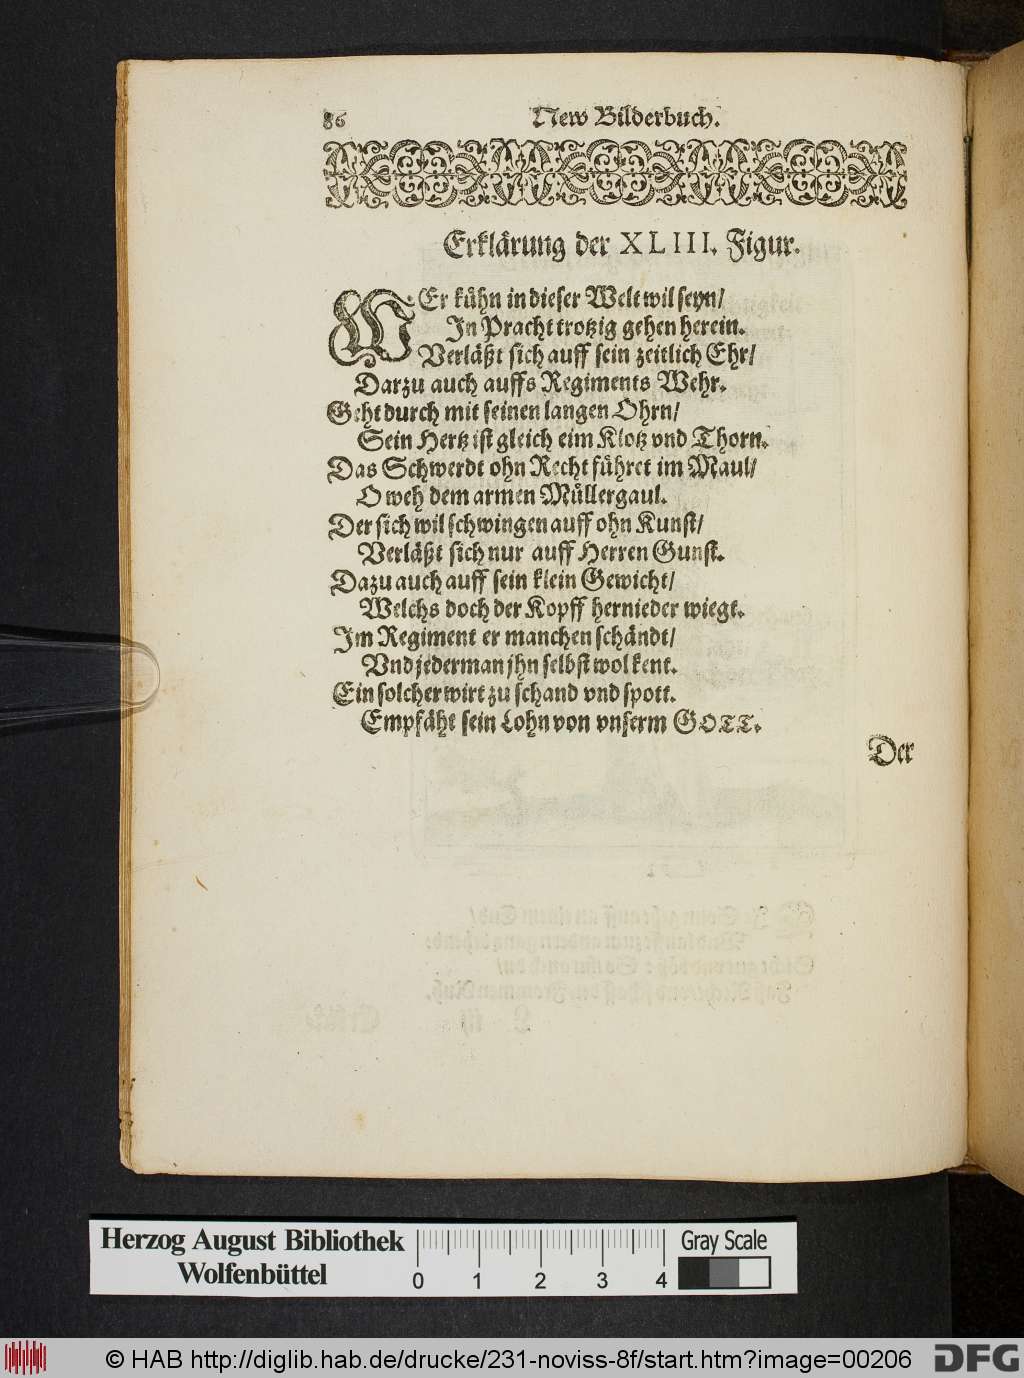 86 New Bilderbuch.
Erklärung der XLIII. Figur.
WEr kühn in dieser Welt wil seyn/
In Pracht trotzig gehen herein.
Verläßt sich auff sein zeitlich Ehr/
Darzu auch auffs Regiments Wehr.
Geht durch mit seinen langen Ohrn/
Sein Hertz ist gleich eim Klotz vnd Thorn.
Das Schwerdt ohn Recht führet im Maul/
O weh dem armen Müllergaul.
Der sich wil schwingen auff ohn Kunst/
Verläßt sich nur auff Herren Gunst.
Dazu auch auff sein klein Gewicht/
Welchs doch der Kopff hernieder wiegt.
Im Regiment er manchen schändt/
Vnd jederman jhn selbst wol kent.
Ein solcher wirt zu schand vnd spott.
Empfäht sein Lohn von vnserm GOTT.
Der
Herzog August Bibliothek
Wolfenbüttel
0 1 2 3 4
Gray Scale
© HAB http://diglib.hab.de/drucke/231-noviss-8f/start.htm?image=00206
DFG